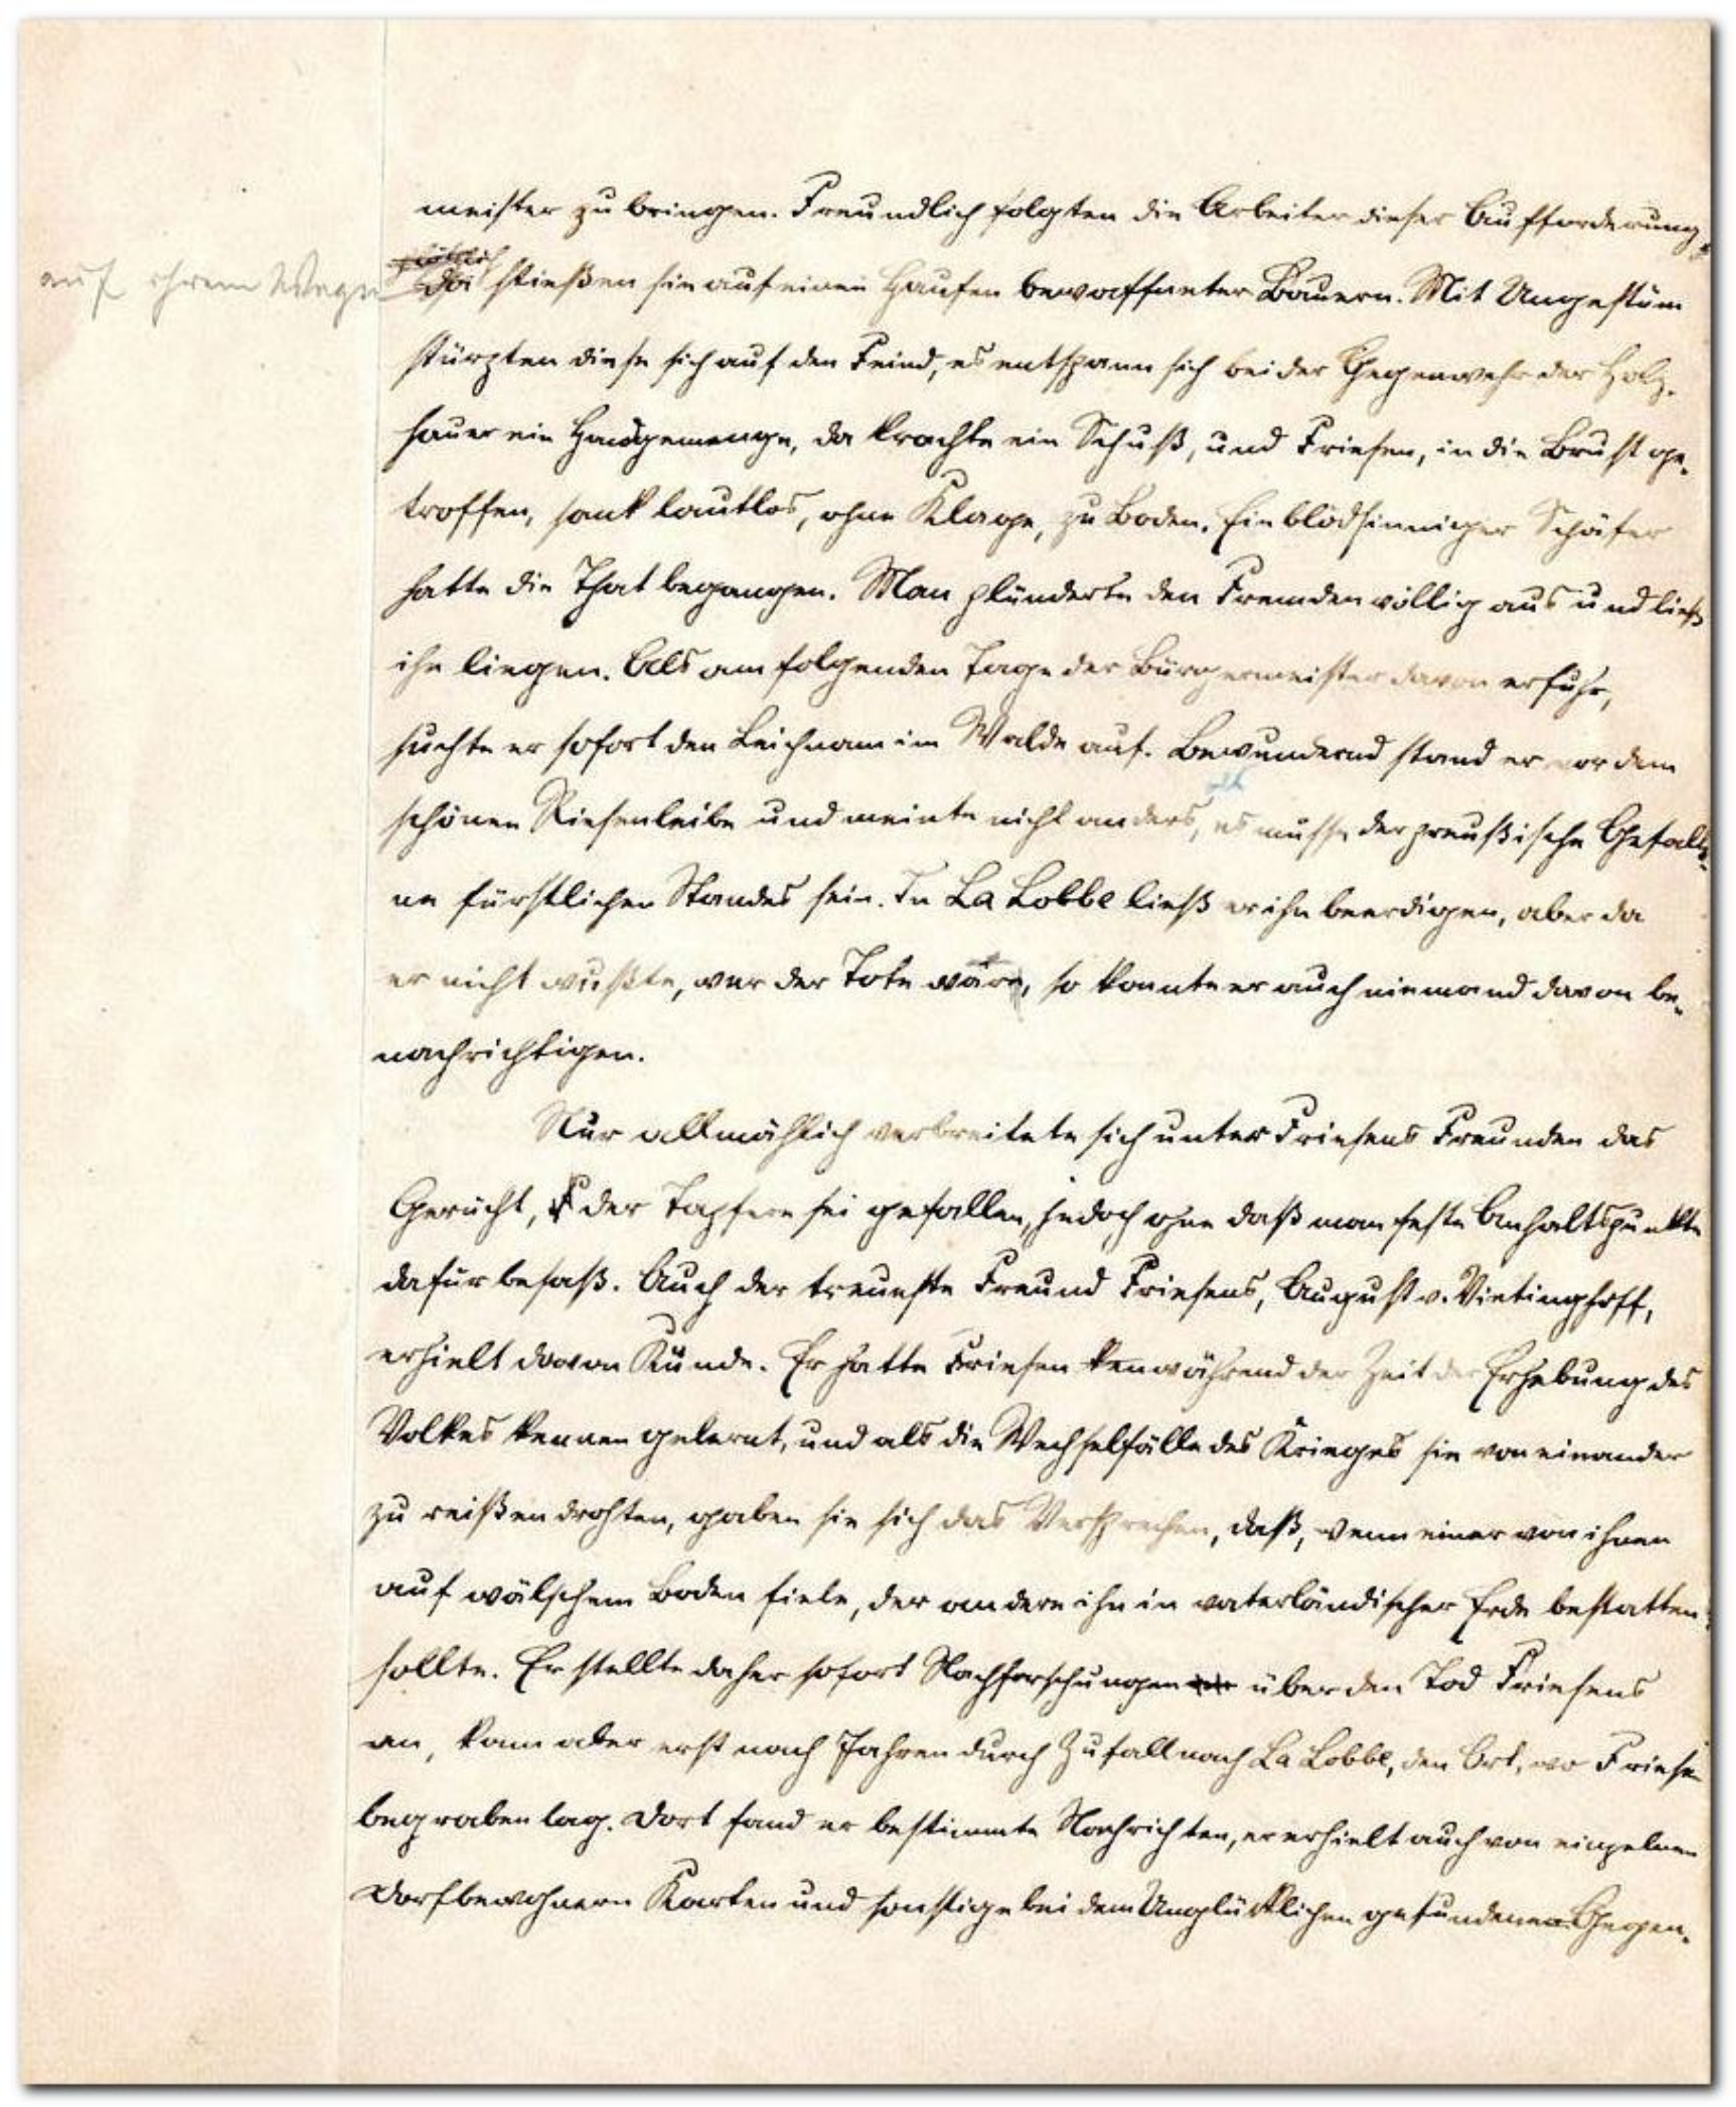 meister zu bringen. Freundlich folgten die Arbeiter dieser Aufforderung,
plötzlich
auf ihrem Wege
da stießen sie auf einen Haufen bewaffneter Bauern. Mit Ungestüm
stürzten diese sich auf den Feind, es entspann sich bei der Gegenwehr der Holz-
hauer ein Handgemenge, da krachte ein Schuß, und Friesen, in die Brust ge-
troffen, sank lautlos, ohne Klage, zu Boden. Ein blödsinniger Schäfer
hatte die That begangen. Man plünderte den Fremden völlig aus und ließ
ihn liegen. Als am folgenden Tage der Bürgermeister davon erfuhr,
suchte er sofort den Leichnam im Walde auf. Bewundernd stand er vor dem
schönen Riesenleibe und meinte nicht anders, es müsse der preußische Gefalle-
ne fürstlichen Standes sein. In La Lobbe ließ er ihn beerdigen, aber da
er nicht wußte, wer der Tote wäre, so konnte er auch niemand davon be-
nachrichtigen.
Nur allmählich verbreitete sich unter Friesens Freunden das
Gerücht, F der Tapfere sei gefallen, jedoch ohne daß man feste Anhaltspunkte
dafür besaß. Auch der treueste Freund Friesens, August v. Vietinghoff,
erhielt davon Kunde. Er hatte Friesen ken während der Zeit der Erhebung des
Volkes kennen gelernt, und als die Wechselfälle des Krieges sie von einander
zu reißen drohten, gaben sie sich das Versprechen, daß, wenn einer von ihnen
auf wälschem Boden fiele, der andere ihn in vaterländischer Erde bestatten
sollte. Er stellte daher sofort Nachforschungen über den Tod Friesens
an, kam aber erst nach Jahren durch Zufall nach La Lobbe, den Ort, wo Friesen
begraben lag. Dort fand er bestimmte Nachrichten, er erhielt auch von einzelnen
Dorfbewohnern Karten und sonstige bei dem Unglücklichen gefundenen Gegen-